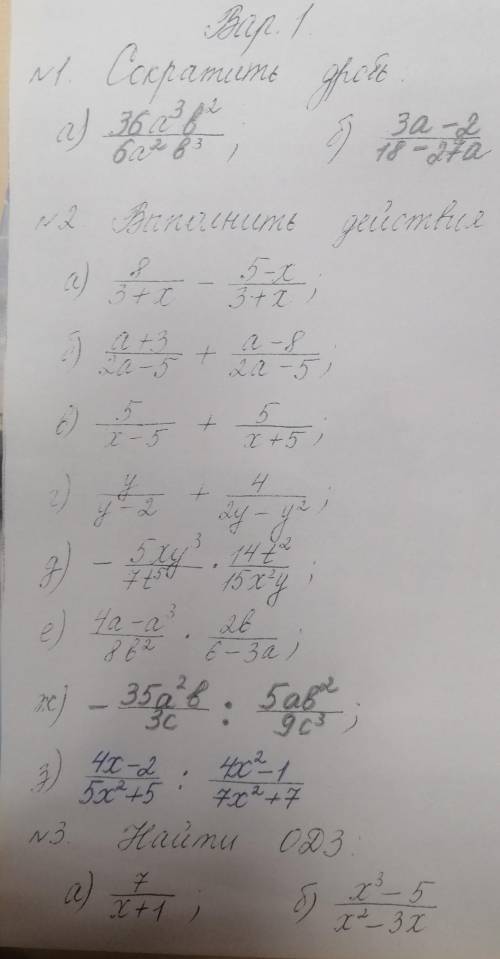 Вар. 1.
№1. Сократить дробь.
а) 36a³b²/6a²b³; б) 3a-2/18-27a
№2 Выполнить действия
а) 8/3+x - 5-x/3+x;
б) a+3/2a-5 + a-8/2a-5;
в) 5/x-5 + 5/x+5;
г) y/y-2 + 4/2y-y²;
д) - 5xy³/7t⁵ · 14t²/15x²y;
е) 4a-a³/8b² · 2b/6-3a;
ж) - 35a²b/3c : 5ab²/9c³;
з) 4x-2/5x²+5 : 4x²-1/7x²+7
№3. Найти ОДЗ:
а) 7/x+1; б) x³-5/x²-3x